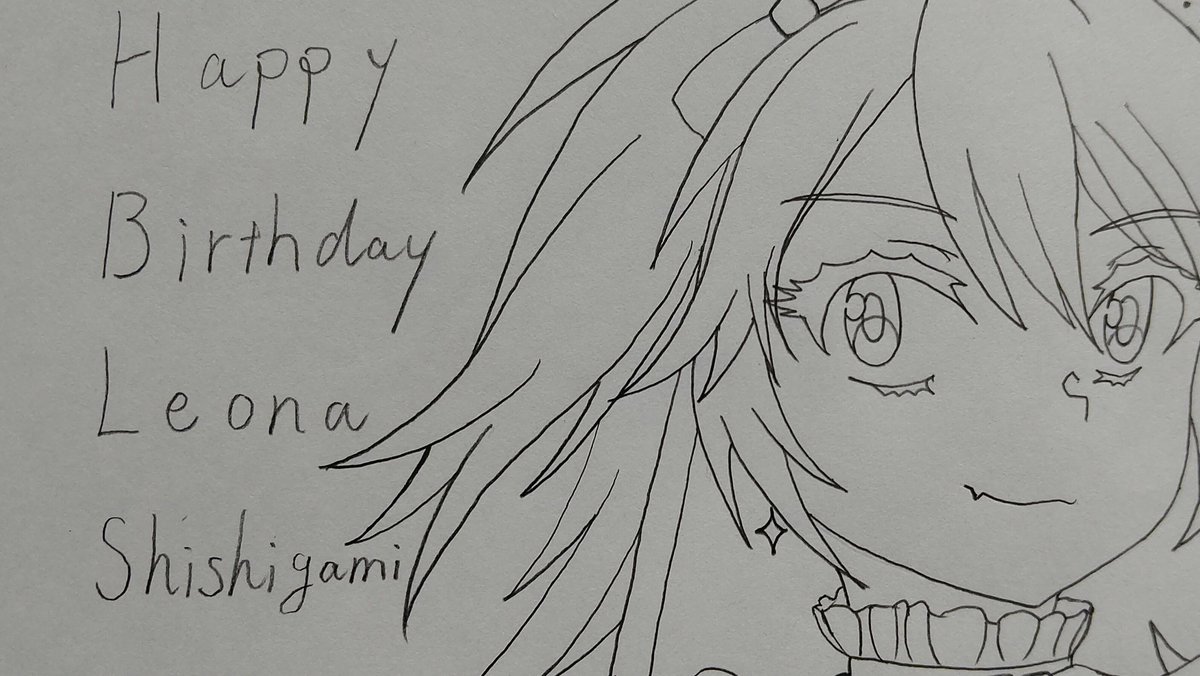 Happy
Birthday
Leona
Shishigami